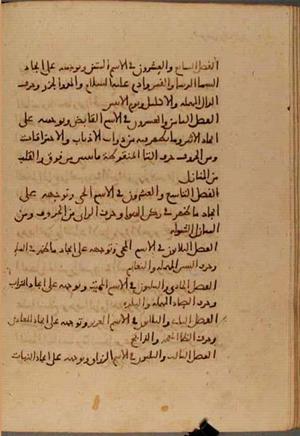 الفصل السابع والعشرون في الاسم المبين وتوجهه على ايجاد
السماء الدنيا والقمر وادم عليه السلام والمد والجزر وحرف
الدال المهمله والاكليل ويوم الاثنين
الفصل الثامن والعشرون في الاسم القابض وتوجهه على
ايجاد الاثير وما يظهر فيه من ذوات الاذناب والاحتراقات
ومن الحروف حرف التا المنقوطة من فوق والقلب
من المنازل
الفصل التاسع والعشرون في الاسم الحي وتوجهه على
ايجاد ما ظهر في ركن الهوا وحرف الزاي من الحروف ومن
المنازل الشوله
الفصل الثلاثون في الاسم المحيي وتوجهه على ايجاد ما ظهر في الماء
وحرف السين المهمله والنعايم
الفصل الحادي والثلثون في الاسم المميت وتوجهه على ايجاد التراب
وحرف الصاد المهمله والبلده
الفصل الثاني والثلاثون في الاسم العزيز وتوجهه على ايجاد المعادن
وحرف الظا المعجمه والذابح
الفصل الثالث والثلثون في الاسم الرزاق وتوجهه على ايجاد النبات